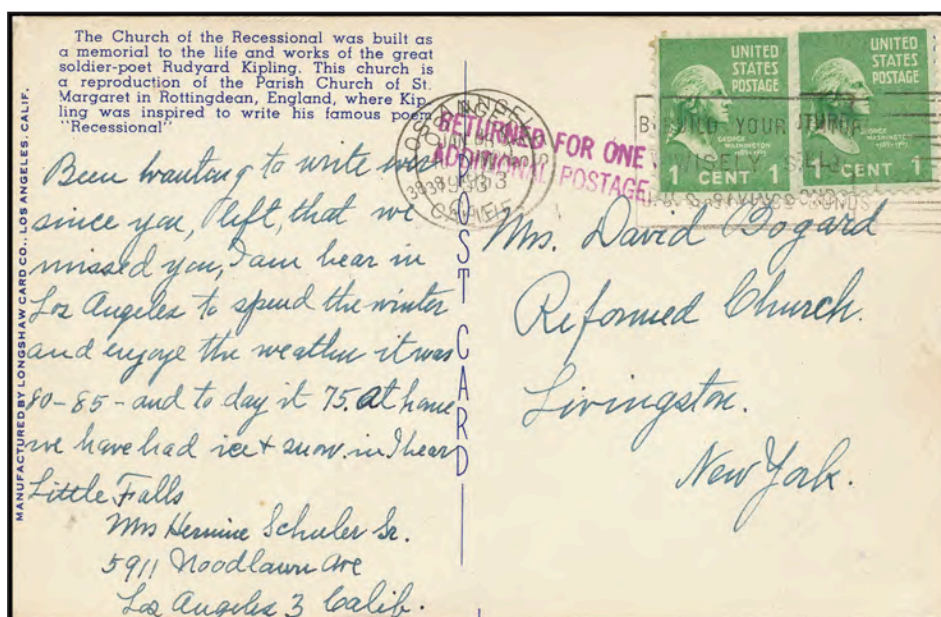 The Church of the Recessional was built as
a memorial to the life and works of the great
soldier-poet Rudyard Kipling. This church is
a reproduction of the Parish Church of St.
Margaret in Rottingdean, England, where Kip-
ling was inspired to write his famous poem
"Recessional"
MANUFACTURED BY LONGSHAW CARD CO., LOS ANGELES, CALIF.
Been wanting to write
since you, left, that we
missed you, I am hear in
Los Angeles to spend the winter
and enjoye the weather it was
80-85- and to day it 75. at home
we have had ice + snow. in I hear
Little Falls
Mrs Hermine Schuler Sr.
5911 Woodlawn Ave
Los Angeles 3 Calif.
POST CARD
LOS ANGELES
CALIF.
RETURNED FOR ONE
ADDITIONAL POSTAGE
UNITED
STATES
POSTAGE
GEORGE
WASHINGTON
1789-1797
1 CENT 1
UNITED
STATES
POSTAGE
GEORGE
WASHINGTON
1789-1797
1 CENT 1
BUILD YOUR FUTURE
WISELY
U.S. SAVINGS BONDS
Mrs. David Bogard
Reformed Church.
Livingston.
New York.